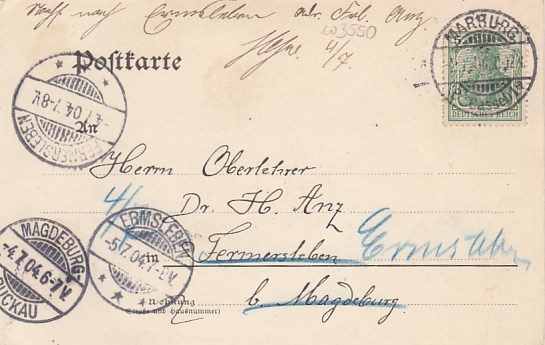 nach Ermsleben adr. Frl. Anz
w3550
4/7
Postkarte
MARBURG
DEUTSCHES REICH
FERMERSLEBEN
4.7.04.7-8V.
An
Herrn Oberlehrer
Dr. H. Anz
4/7
ERMSLEBEN
5.7.04.7-8V.
in
Fermersleben Ermsleben
MAGDEBURG-BUCKAU
-4.7.04.6-7V.
b. Magdeburg
Wohnung
(Straße und Hausnummer)